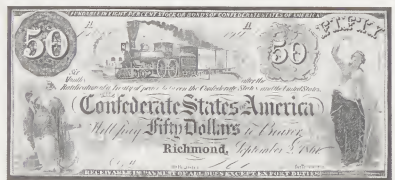 FUNDABLE IN EIGHT PER CENT STOCK OR BONDS OF CONFEDERATE STATES OF AMERICA
50
50
FIFTY
Six
Months
after the
Ratification of a Treaty of peace between the Confederate States and the United States,
Confederate States America
Will pay Fifty Dollars to Bearer
Richmond, September 2, 186
RECEIVABLE IN PAYMENT OF ALL DUES EXCEPT EXPORT DUTIES